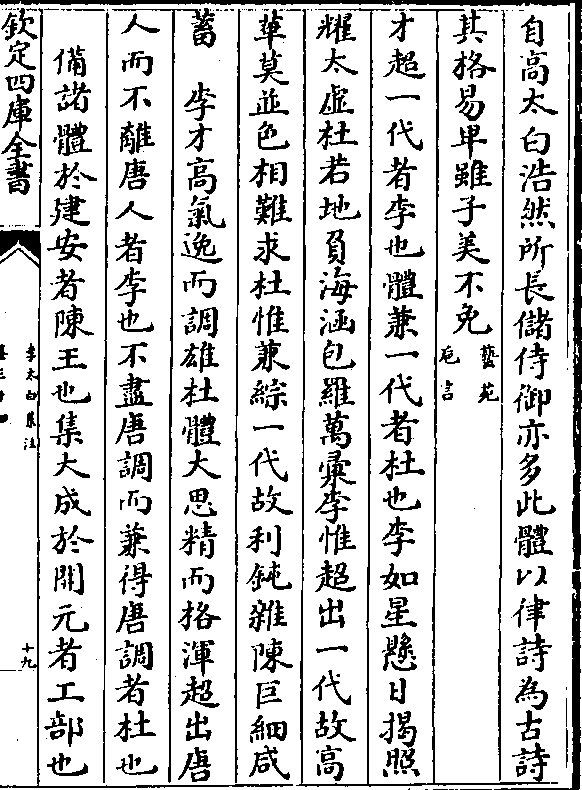 自高太白浩然所長儲侍御亦多此體以律詩為古詩
其格易卑雖子美不免藝苑巵言
才超一代者李也體兼一代者杜也李如星懸日揭照
耀太虛杜若地負海涵包羅萬彙李惟超出一代故高
華莫並色相難求杜惟兼綜一代故利鈍雜陳巨細咸
蓄　李才高氣逸而調雄杜體大思精而格渾超出唐
人而不離唐人者李也不盡唐調而兼得唐調者杜也
備諸體於建安者陳王也集大成於開元者工部也
欽定四庫全書
李太白集注
卷三十四
十九